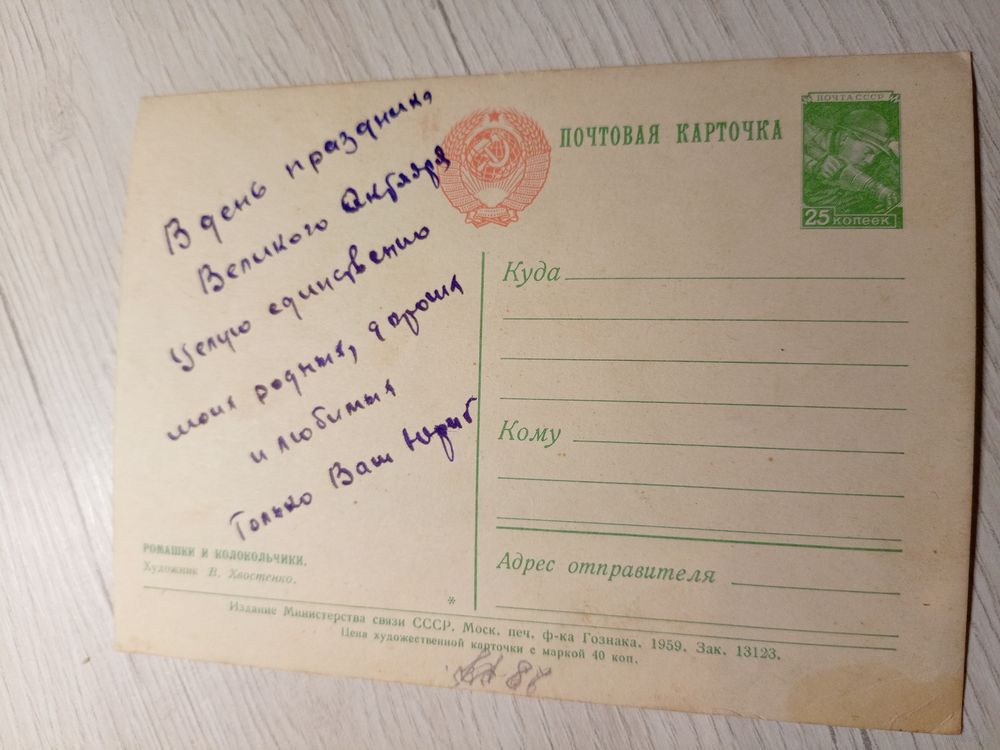 В день праздника
Великого Октября
Целую единственно
моих родных,
и любимых
Только Ваш
ПОЧТОВАЯ КАРТОЧКА
ПОЧТА СССР
25 КОПЕЕК
Куда
Кому
Адрес отправителя
РОМАШКИ И КОЛОКОЛЬЧИКИ.
Художник В. Хвостенко.
*
Издание Министерства связи СССР. Моск. печ. ф-ка Гознака. 1959. Зак. 13123.
Цена художественной карточки с маркой 40 коп.